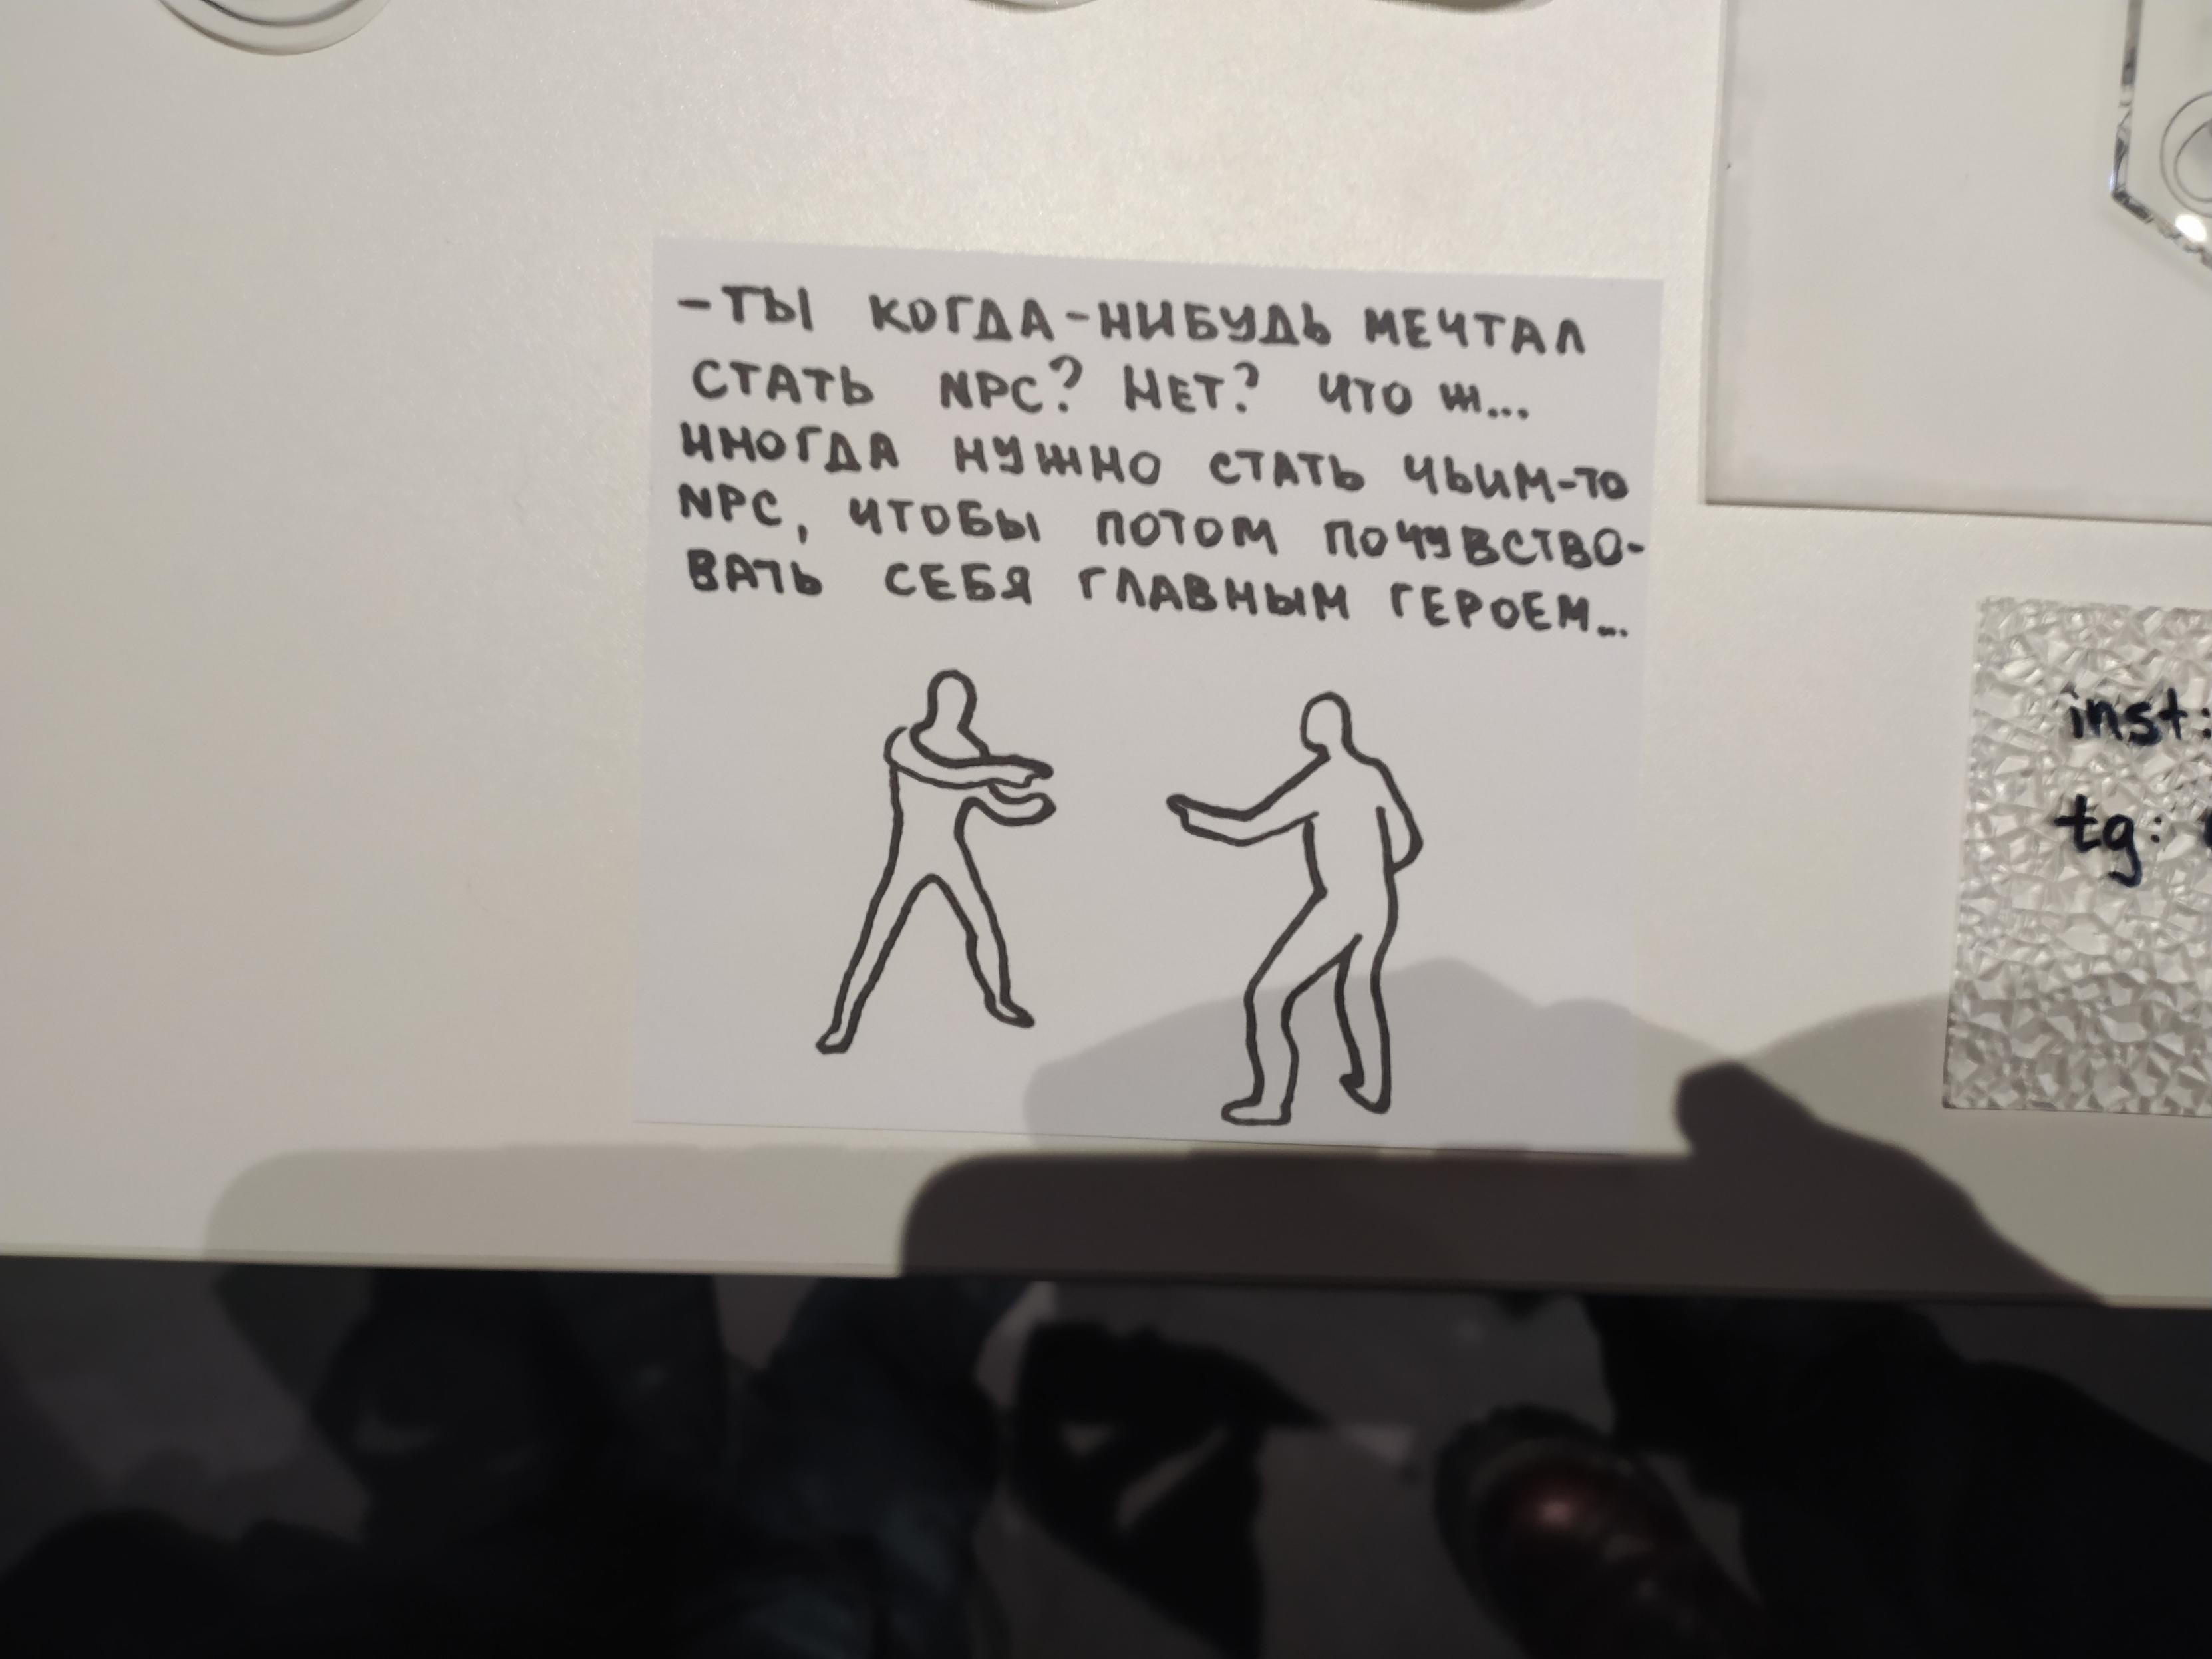 -ТЫ КОГДА-НИБУДЬ МЕЧТАЛ
СТАТЬ NPC? НЕТ? ЧТО Ж...
ИНОГДА НУЖНО СТАТЬ ЧЬИМ-ТО
NPC, ЧТОБЫ ПОТОМ ПОЧУВСТВО-
ВАТЬ СЕБЯ ГЛАВНЫМ ГЕРОЕМ...
inst:
tg: